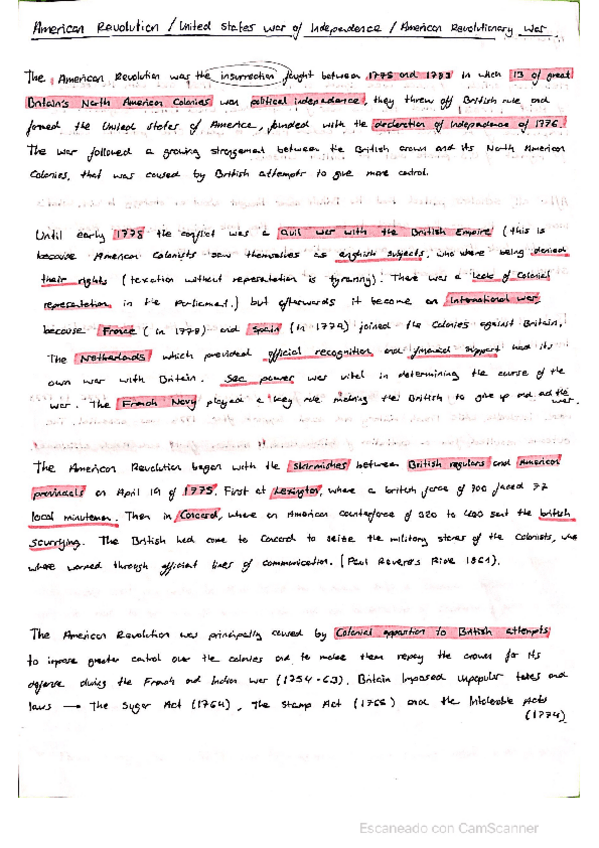 American Revolution / United States war of Independence / American Revolutionary War
The American Revolution was the insurrection fought between 1775 and 1783 in which 13 of great
Britain's North American Colonies won political independence, they threw off British rule and
formed the United States of America, founded with the declaration of Independence of 1776.
The war followed a growing strangement between the British crown and its North American
Colonies, that was caused by British attempts to give more control.
Until early 1778 the conflict was a civil war with the British Empire (this is
because American Colonists saw themselves as english subjects, who where being denied
their rights (taxation without representation is tyranny). There was a lack of Colonial
representation in the Parliament.) but afterwards it became an International war
because France (in 1778) and Spain (in 1779) joined the Colonies against Britain,
The Netherlands which provided official recognition and financial support had its
own war with Britain. Sea power was vital in determining the course of the
war. The French Navy played a key role making the British to give up and end the
war.
The American Revolution began with the skirmishes between British regulars and American
provincials on April 19 of 1775. First at Lexington, where a british force of 700 faced 77
local minutemen. Then in Concord, where an American counterforce of 320 to 400 sent the british
scurrying. The British had come to Concord to seize the military stores of the Colonists, who
where warned through efficient lines of communication. (Paul Revere's Ride 1861).
The American Revolution was principally caused by Colonial opposition to British attempts
to impose greater control over the colonies and to make them repay the crown for its
defense during the French and Indian War (1754-63). Britain Imposed unpopular taxes and
laws → The Sugar Act (1764), The Stamp Act (1765) and the Intolerable Acts
(1774)
Escaneado con CamScanner